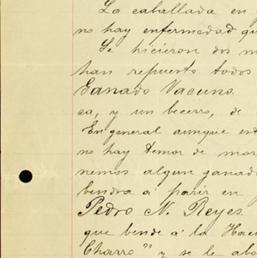 La caballada en
no hay enfermedad que
Se hicieron dos m
han repuesto todos
Ganado Vacuno.
ca, y un becerro, de
En general aunque est
no hay temor de mor
nemos algun ganad
bendra á parir en
Pedro N. Reyes
que bende á la Hac
Charro" y se le abo